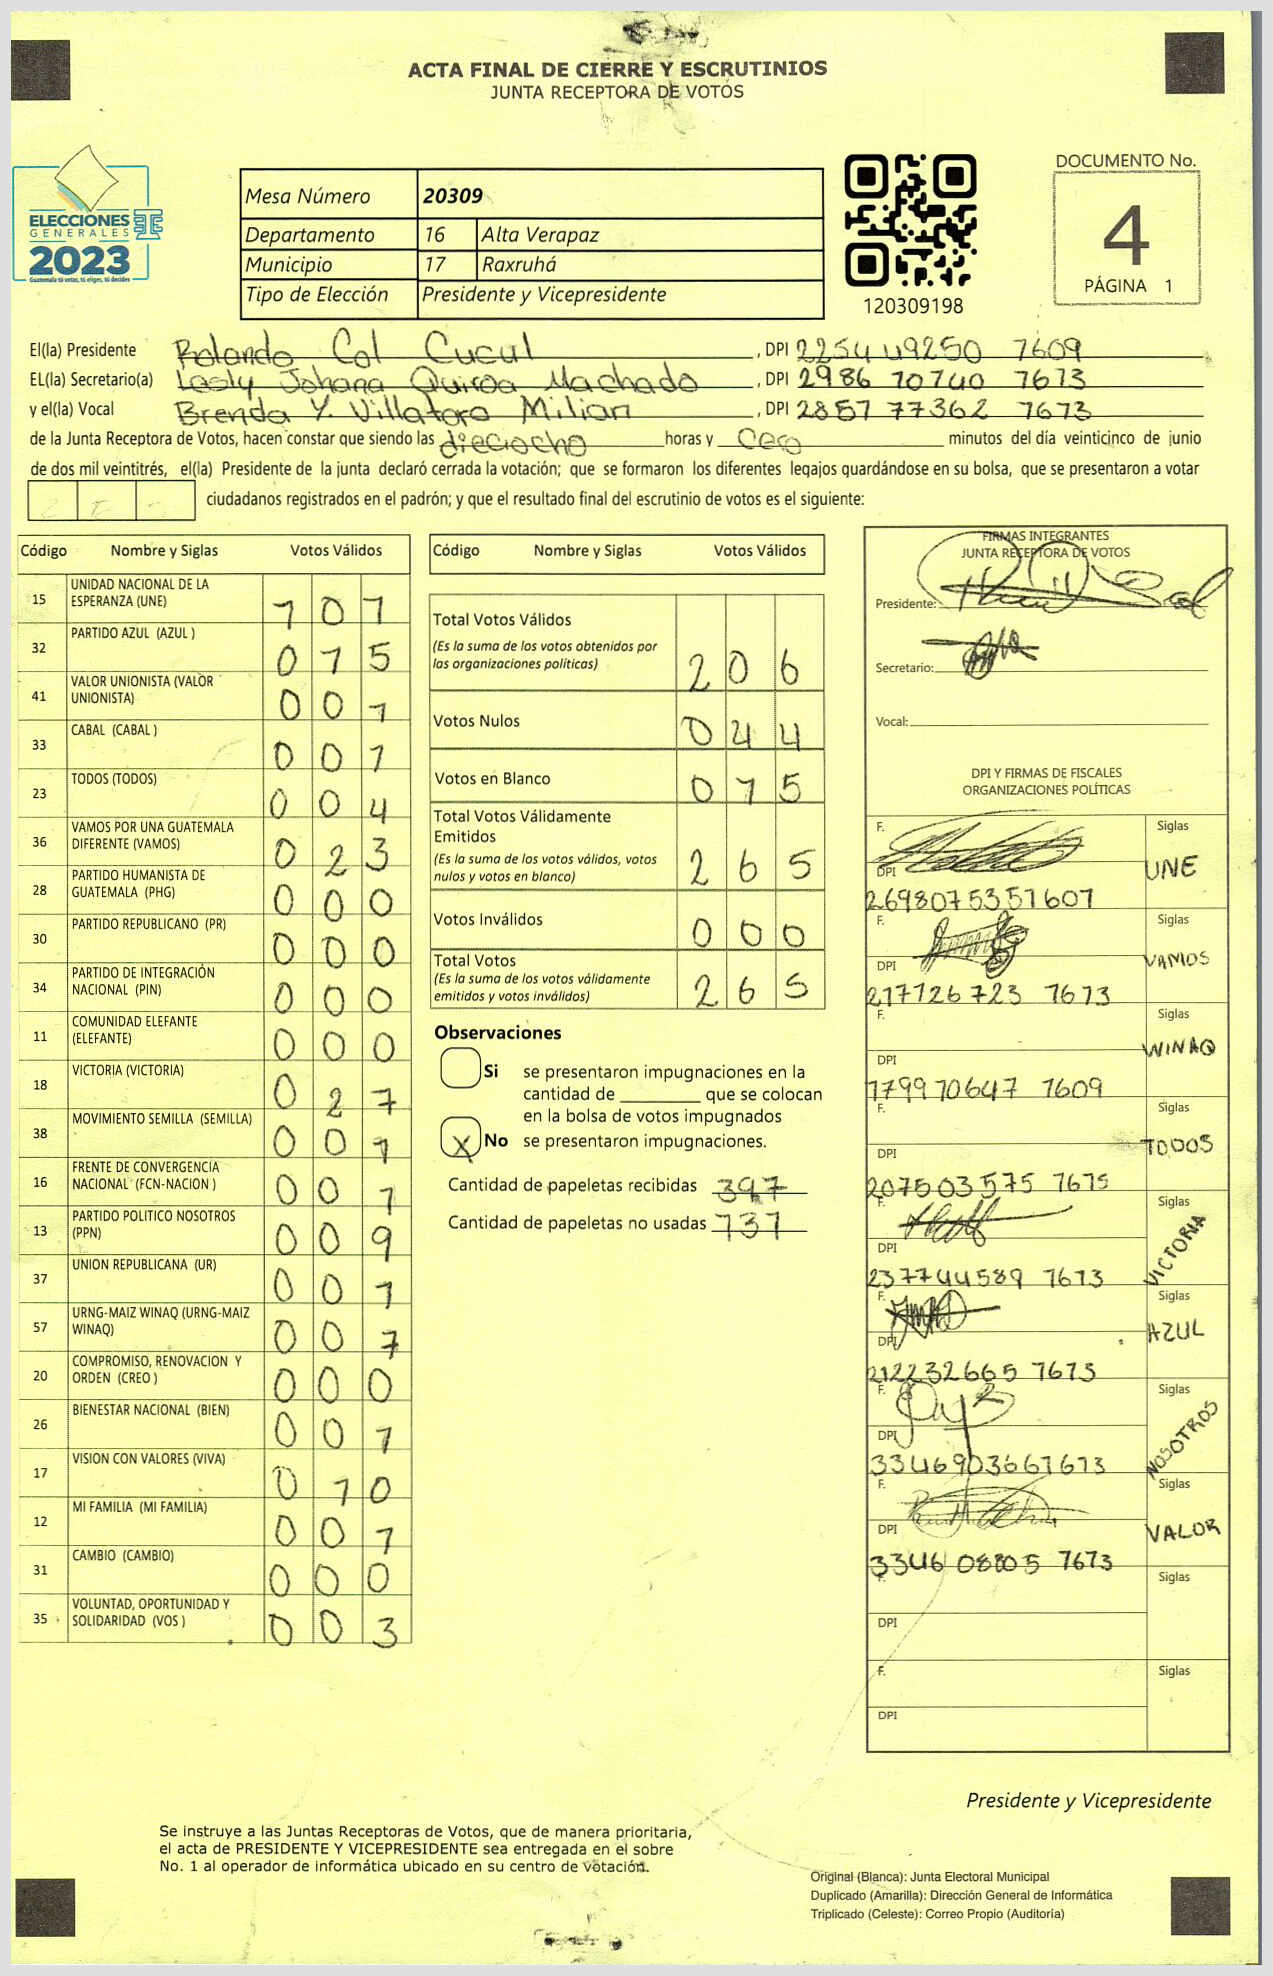 ACTA FINAL DE CIERRE Y ESCRUTINIOS
JUNTA RECEPTORA DE VOTOS
ELECCIONES
GENERALES
2023
Guatemala tú votas, tú eliges, tú decides
Mesa Número 20309
Departamento 16 Alta Verapaz
Municipio 17 Raxruhá
Tipo de Elección Presidente y Vicepresidente
120309198
DOCUMENTO No.
4
PÁGINA 1
El(la) Presidente Rolando Col Cucul, DPI 2254 49250 1609
EL(la) Secretario(a) Lesly Johana Quiroa Machado, DPI 2986 10740 1613
y el(la) Vocal Brenda Y. Villatoro Milian, DPI 2857 77362 1613
de la Junta Receptora de Votos, hacen constar que siendo las dieciocho horas y cero minutos del día veinticinco de junio
de dos mil veintitrés, el(la) Presidente de la junta declaró cerrada la votación; que se formaron los diferentes legajos guardándose en su bolsa, que se presentaron a votar
ciudadanos registrados en el padrón; y que el resultado final del escrutinio de votos es el siguiente:
Código Nombre y Siglas Votos Válidos
15 UNIDAD NACIONAL DE LA ESPERANZA (UNE) 101
32 PARTIDO AZUL (AZUL ) 015
41 VALOR UNIONISTA (VALOR UNIONISTA) 001
33 CABAL (CABAL ) 001
23 TODOS (TODOS) 004
36 VAMOS POR UNA GUATEMALA DIFERENTE (VAMOS) 023
28 PARTIDO HUMANISTA DE GUATEMALA (PHG) 000
30 PARTIDO REPUBLICANO (PR) 000
34 PARTIDO DE INTEGRACIÓN NACIONAL (PIN) 000
11 COMUNIDAD ELEFANTE (ELEFANTE) 000
18 VICTORIA (VICTORIA) 027
38 MOVIMIENTO SEMILLA (SEMILLA) 001
16 FRENTE DE CONVERGENCIA NACIONAL (FCN-NACION ) 001
13 PARTIDO POLITICO NOSOTROS (PPN) 009
37 UNION REPUBLICANA (UR) 001
57 URNG-MAIZ WINAQ (URNG-MAIZ WINAQ) 007
20 COMPROMISO, RENOVACION Y ORDEN (CREO ) 000
26 BIENESTAR NACIONAL (BIEN) 001
17 VISION CON VALORES (VIVA) 010
12 MI FAMILIA (MI FAMILIA) 001
31 CAMBIO (CAMBIO) 000
35 VOLUNTAD, OPORTUNIDAD Y SOLIDARIDAD (VOS ) 003
Código Nombre y Siglas Votos Válidos
Total Votos Válidos 206
(Es la suma de los votos obtenidos por
las organizaciones políticas)
Votos Nulos 044
Votos en Blanco 015
Total Votos Válidamente
Emitidos 265
(Es la suma de los votos válidos, votos
nulos y votos en blanco)
Votos Inválidos 000
Total Votos 265
(Es la suma de los votos válidamente
emitidos y votos inválidos)
Observaciones
Si se presentaron impugnaciones en la
cantidad de ________ que se colocan
en la bolsa de votos impugnados
X No se presentaron impugnaciones.
Cantidad de papeletas recibidas 397
Cantidad de papeletas no usadas 131
FIRMAS INTEGRANTES
JUNTA RECEPTORA DE VOTOS
Presidente:
Secretario:
Vocal:
DPI Y FIRMAS DE FISCALES
ORGANIZACIONES POLÍTICAS
F. Siglas UNE
DPI 2698075351607
F. Siglas VAMOS
DPI 217726723 1613
F. Siglas WINAQ
DPI 1799 10647 1609
F. Siglas TODOS
DPI 207503575 1615
F. Siglas VICTORIA
DPI 237744589 1613
F. Siglas AZUL
DPI 212232665 1613
F. Siglas NOSOTROS
DPI 3346903661613
F. Siglas VALOR
DPI 3346 08805 1613
F. Siglas
DPI
F. Siglas
DPI
Presidente y Vicepresidente
Se instruye a las Juntas Receptoras de Votos, que de manera prioritaria,
el acta de PRESIDENTE Y VICEPRESIDENTE sea entregada en el sobre
No. 1 al operador de informática ubicado en su centro de votación.
Original (Blanca): Junta Electoral Municipal
Duplicado (Amarilla): Dirección General de Informática
Triplicado (Celeste): Correo Propio (Auditoría)